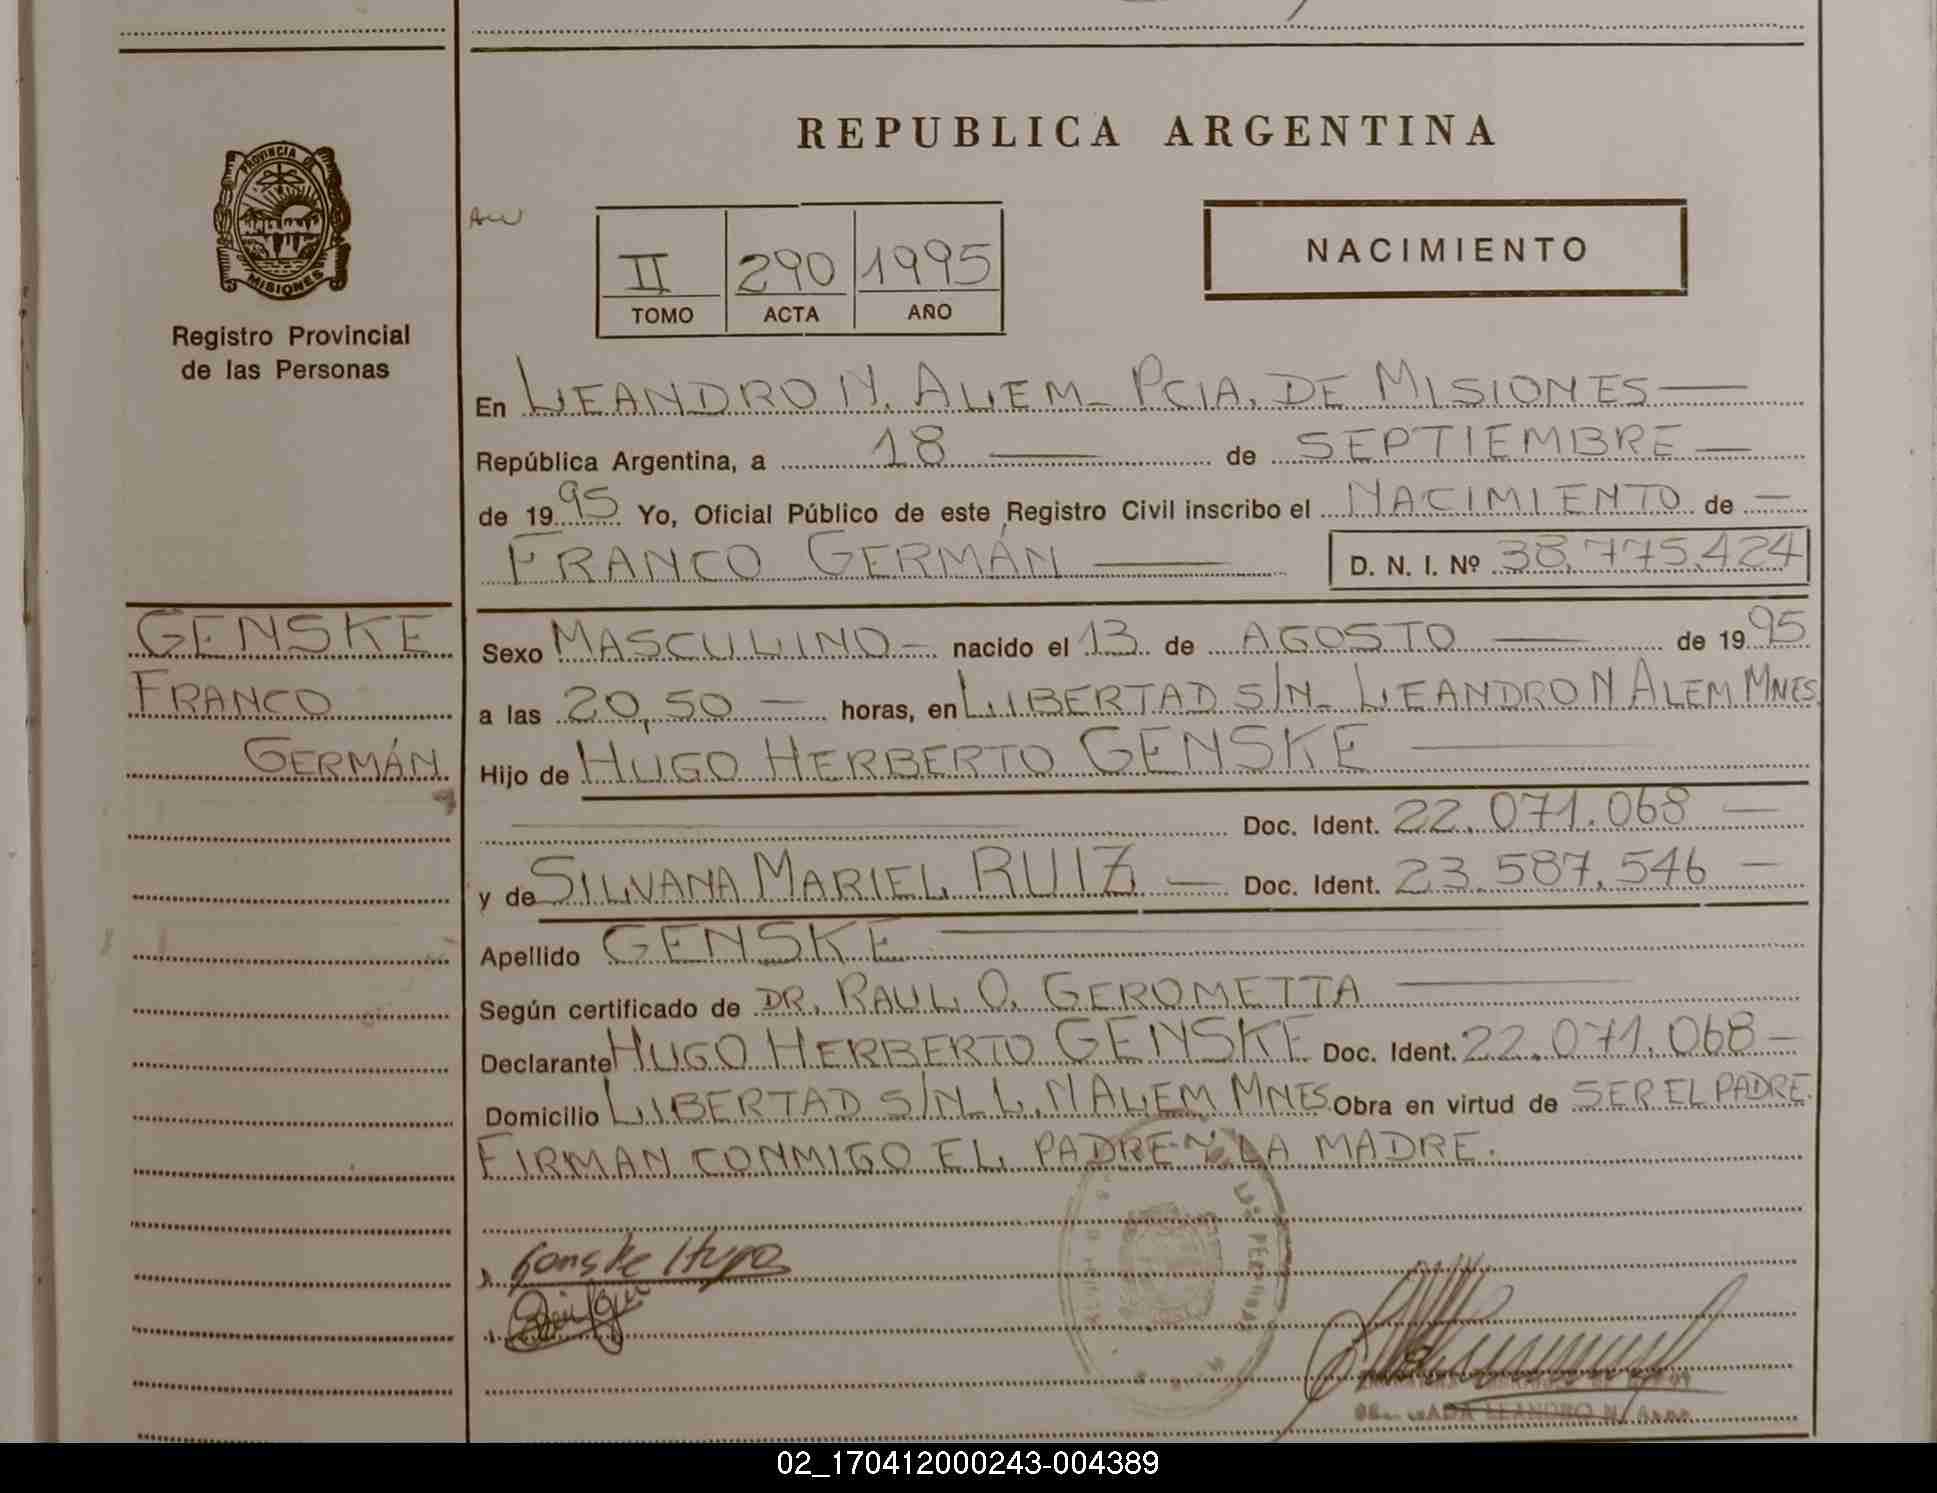 PROVINCIA DE
MISIONES
Registro Provincial
de las Personas
GENSKE
FRANCO
GERMÁN
REPUBLICA ARGENTINA
II 290 1995
TOMO ACTA AÑO
NACIMIENTO
En LEANDRO N. ALEM - PCIA. DE MISIONES —
República Argentina, a 18 — de SEPTIEMBRE —
de 1995 Yo, Oficial Público de este Registro Civil inscribo el NACIMIENTO de —
FRANCO GERMÁN — D. N. I. Nº 38.775.424
Sexo MASCULINO — nacido el 13 de AGOSTO — de 1995
a las 20,50 — horas, en LIBERTAD S/N - LEANDRO N ALEM MNES.
Hijo de HUGO HERBERTO GENSKE —
— Doc. Ident. 22.071.068 —
y de SILVANA MARIEL RUIZ — Doc. Ident. 23.587.546 —
Apellido GENSKE —
Según certificado de DR. RAUL O. GEROMETTA —
Declarante HUGO HERBERTO GENSKE Doc. Ident. 22.071.068 —
Domicilio LIBERTAD S/N - L. N ALEM MNES. Obra en virtud de SER EL PADRE.
FIRMAN CONMIGO EL PADRE Y LA MADRE.
Genske Hugo
LEANDRO N. ALEM
02_170412000243-004389